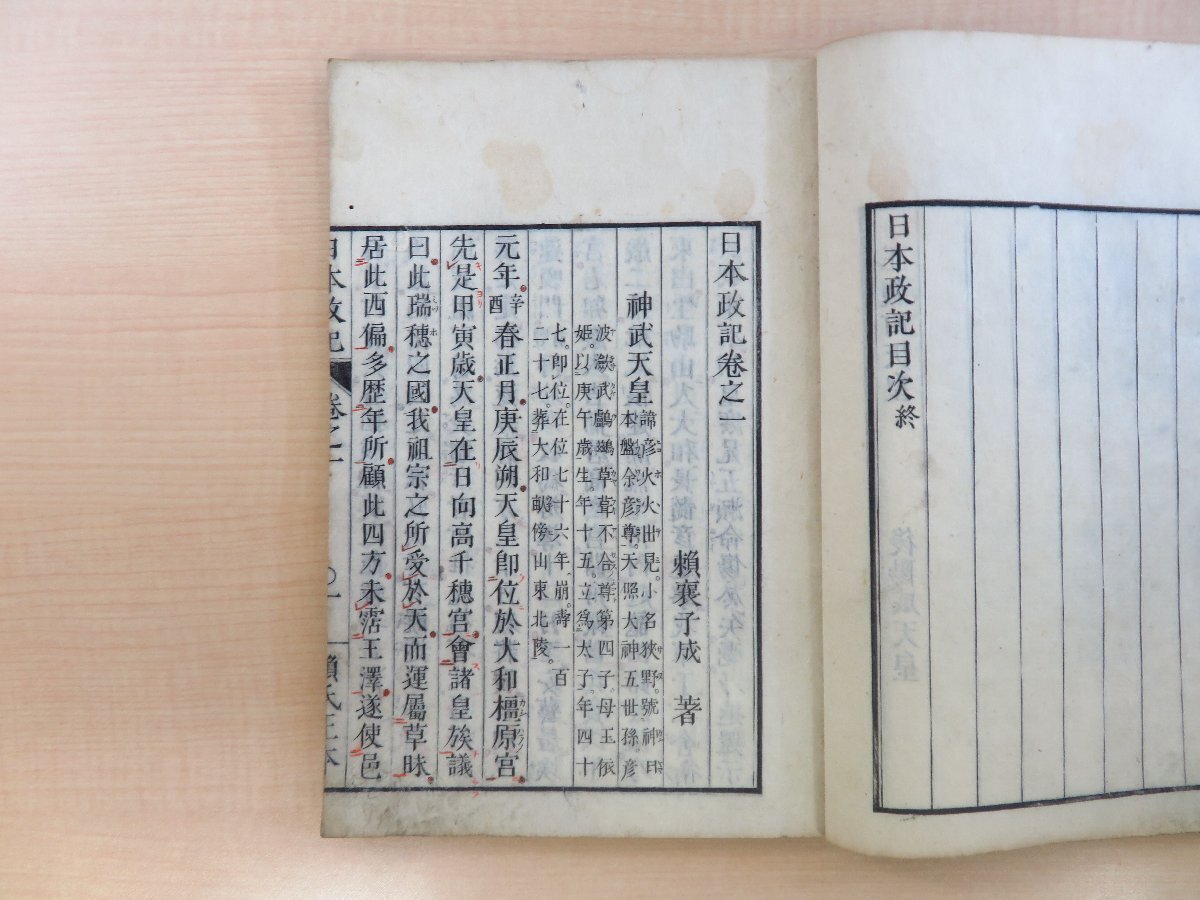 日本政記目次終
日本政記卷之一
賴襄子成　著
神武天皇
諱彦火火出見。小名狹野。號神日
本盤余彦尊。天照大神五世孫。彦
波瀲武鸕鷀草葺不合尊第四子。母玉依
姬。以庚午歲生。年十五。立爲太子。年四十
七。卽位。在位七十六年。崩。壽一百
二十七。葬大和畝傍山東北陵。
元年辛酉春正月庚辰朔天皇卽位於大和橿原宮
先是甲寅歲天皇在日向高千穗宮會諸皇族議
曰此瑞穗之國我祖宗之所愛於天而運屬草昧
居此西偏多歷年所顧此四方未霑王澤遂使邑
日本政記　卷之一　〇一　賴氏正本